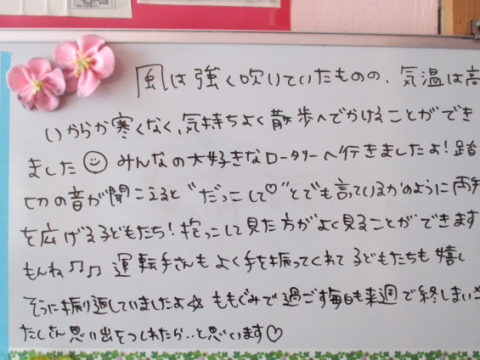 風は強く吹いていたものの、気温は高
いからか寒くなく、気持ちよく散歩へでかけることができ
ました☺ みんなの大好きなロータリーへ行きましたよ！踏
切の音が聞こえると“だっこして♡”とでも言っているかのように両手
を広げる子どもたち！抱っこして見た方がよく見ることができます
もんね♪♪ 運転手さんもよく手を振ってくれて子どもたちも嬉し
そうに振り返していましたよ☆ ももぐみで過ごす毎日も来週で終しまい
たくさん思い出をつくれたら‥と思います♡